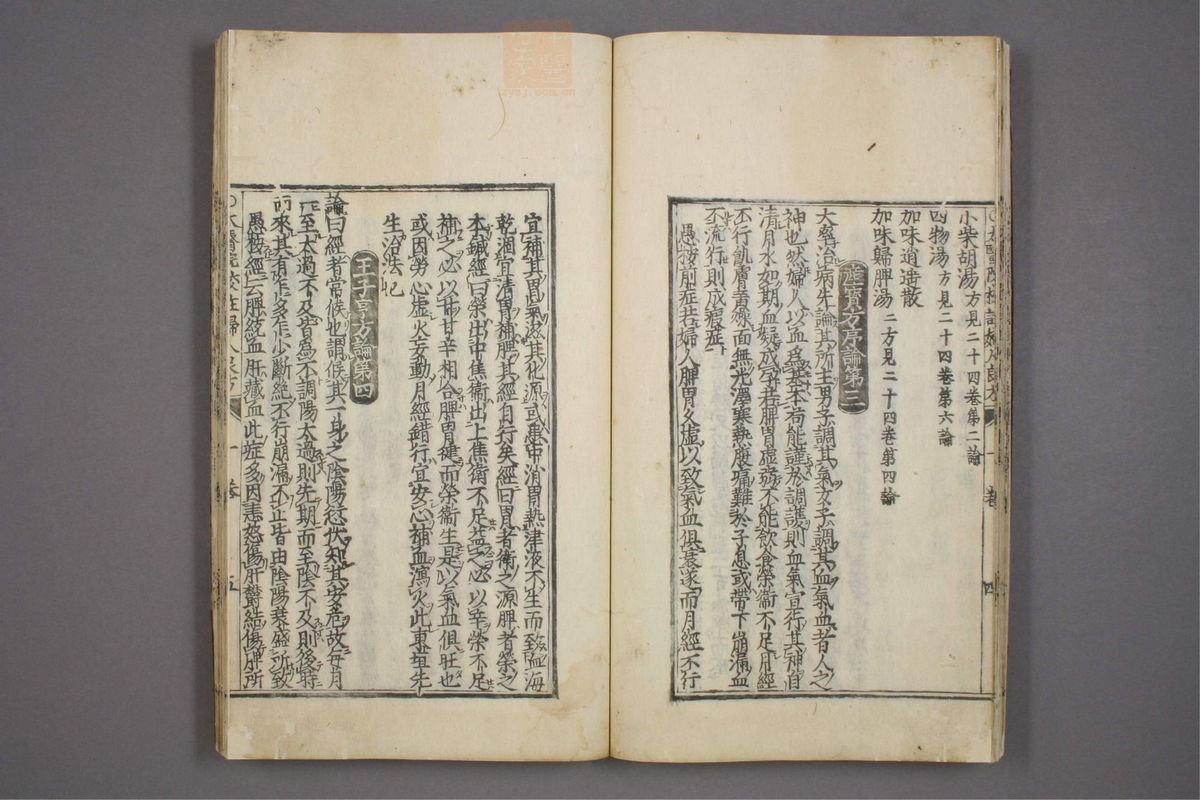 小柴胡湯方見二十四卷第二論
四物湯方見二十四卷第六論
加味逍遙散
加味歸脾湯二方見二十四卷第四論
産寶方序論第三
大率治病先論其所主男子調其氣女子調其血氣血者人之
神也然婦人以血為基本苟能謹於調護則血氣宣行其神自
清月水如期血凝成孕若脾胃虛弱不能飲食榮衞不足月經
不行肌膚黃燥面無光澤寒熱腹痛難於子息或帶下崩漏血
不流行則成瘕症
愚按前症若婦人脾胃久虛以致氣血俱衰遂而月經不行
四
宜補其胃氣滋其化源或患中消胃熱津液不生而致血海
乾涸宜清胃補脾其經自行矣經曰胃者衞之源脾者榮之
本鍼經曰榮出中焦衞出上焦衞不足益之必以辛榮不足
補之必以甘甘辛相合脾胃健而榮衞生是以氣血俱旺也
或因勞心虛火妄動月經錯行宜安心補血瀉火此東垣先
生治法也
王子亨方論第四
論曰經者常候也謂候其一身之陰陽愆伏知其安危故每月
一至太過不及皆為不調陽太過則先期而至陰不及則後時
而來其有乍多乍少斷絶不行崩漏不止皆由陰陽衰盛所致
愚按經云脾統血肝藏血此症多因恚怒傷肝鬱結傷脾所
太醫院校註婦人良方 一卷 五